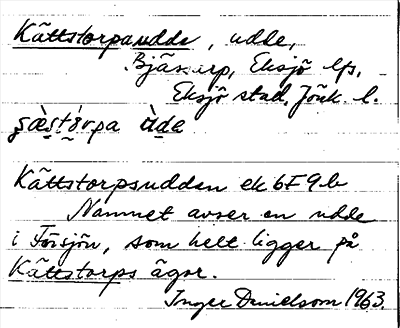 Kättstorpaudde, udde,
Bjäsarp, Eksjö lfs,
Eksjö stad, Jönk. l.
Kättstorpsudden ek 6F9b
Namnet avser en udde
i Försjön, som helt ligger på
Kättstorps ägor.
Inger Danielsson 1963.